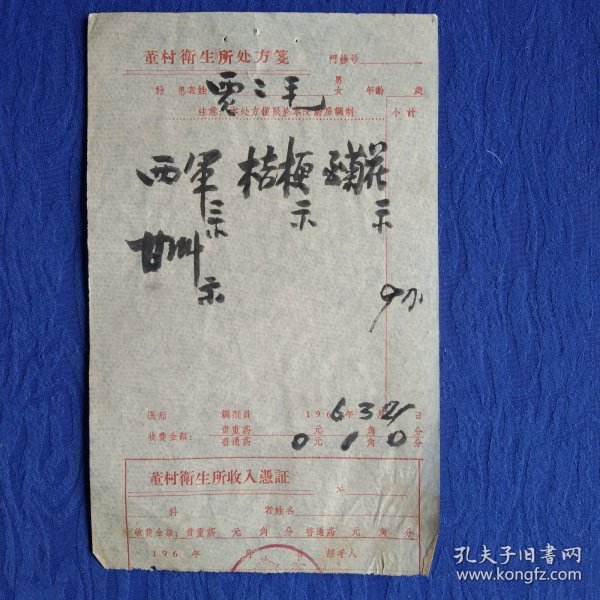 董村衛生所处方箋 門診号
科 患者姓 贾二毛 男 女 年齡 歲
注意:本处方僅限於本院葯房調制 小計
西军 桔梗 菊花
甘草
医师 調剂員 196 6 年 3 月 21 日
收费金額: 貴重葯 元 角 分
普通葯 0 元 1 角 0 分
董村衛生所收入憑証
№
科 者姓名
收费金額: 貴重葯 元 角 分 普通葯 元 角 分
196 年 月 日 經手人
孔夫子旧書网
www.kongfz.com